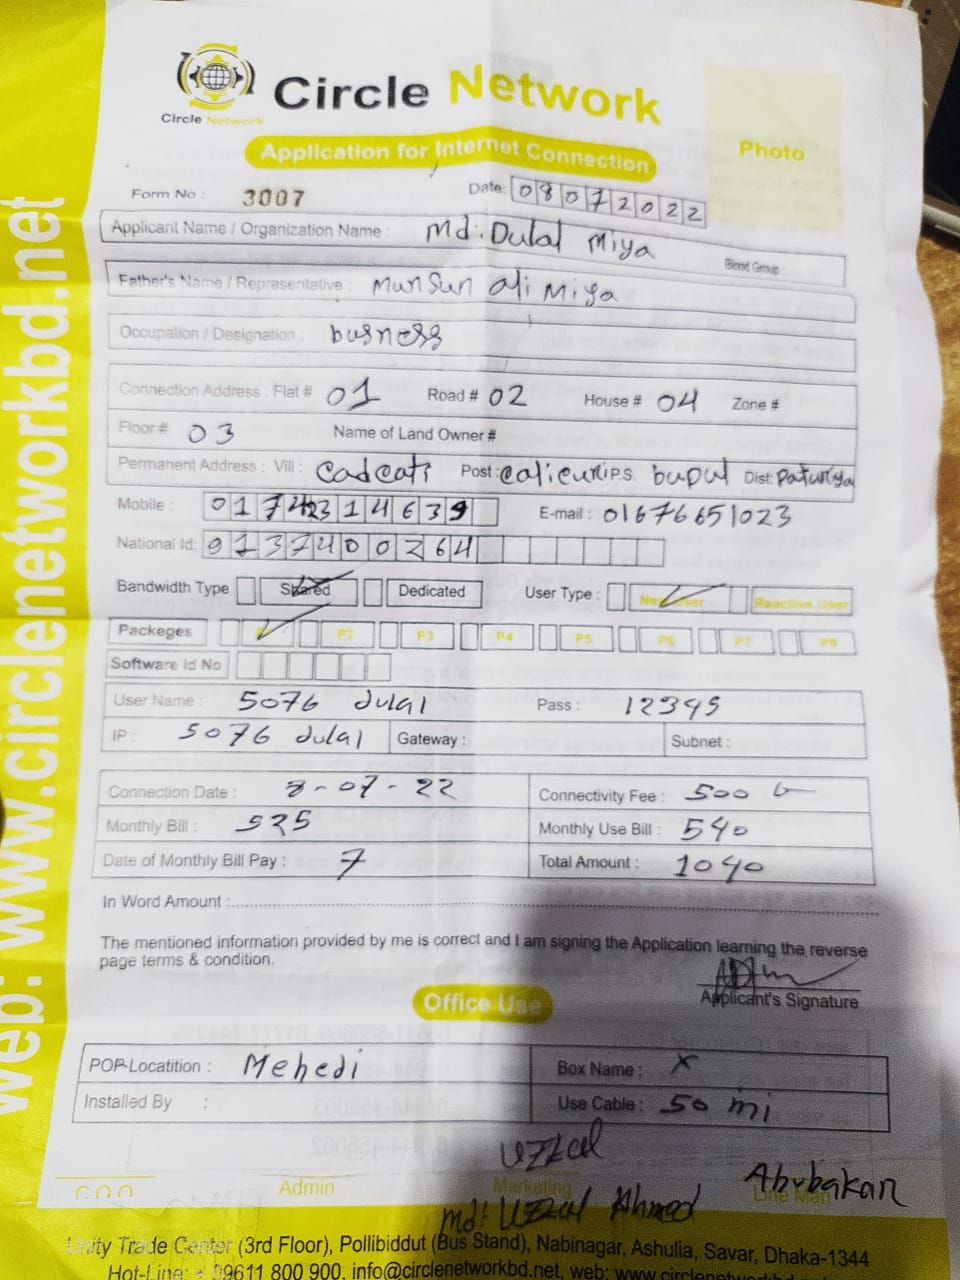 Circle Network
Circle Network
Application for Internet Connection
Photo
Form No : 3007
Date: 08072022
Applicant Name / Organization Name : Md. Dulal Miya
Blood Group :
Father's Name / Representative : Munsun Ali Miya
Occupation / Designation : busness
Connection Address : Flat # 01 Road # 02 House # 04 Zone #
Floor # 03 Name of Land Owner #
Permanent Address : Vill : Post: P.S. Dist:
Mobile : E-mail : 01676651023
National Id: 9137400264
Bandwidth Type Shared Dedicated User Type : New User Reactive User
Packeges P2 P3 P4 P5 P6 P7 P8
Software Id No
User Name : 5076 dulal Pass : 12345
IP : 5076 dulal Gateway : Subnet :
Connection Date : 8-07-22 Connectivity Fee : 500
Monthly Bill : 525 Monthly Use Bill : 540
Date of Monthly Bill Pay : 7 Total Amount : 1040
In Word Amount :
The mentioned information provided by me is correct and I am signing the Application learning the reverse
page terms & condition.
Applicant's Signature
Office Use
POP-Locatition : Mehedi Box Name : x
Installed By : Use Cable : 50 mi
Uzzal
C O O Admin Marketing Line Man Abubakar
Md: Uzzal Ahmed
Unity Trade Center (3rd Floor), Pollibiddut (Bus Stand), Nabinagar, Ashulia, Savar, Dhaka-1344
Hot-Line: + 09611 800 900, info@circlenetworkbd.net, web: www.circlenetworkbd.net
web: www.circlenetworkbd.net